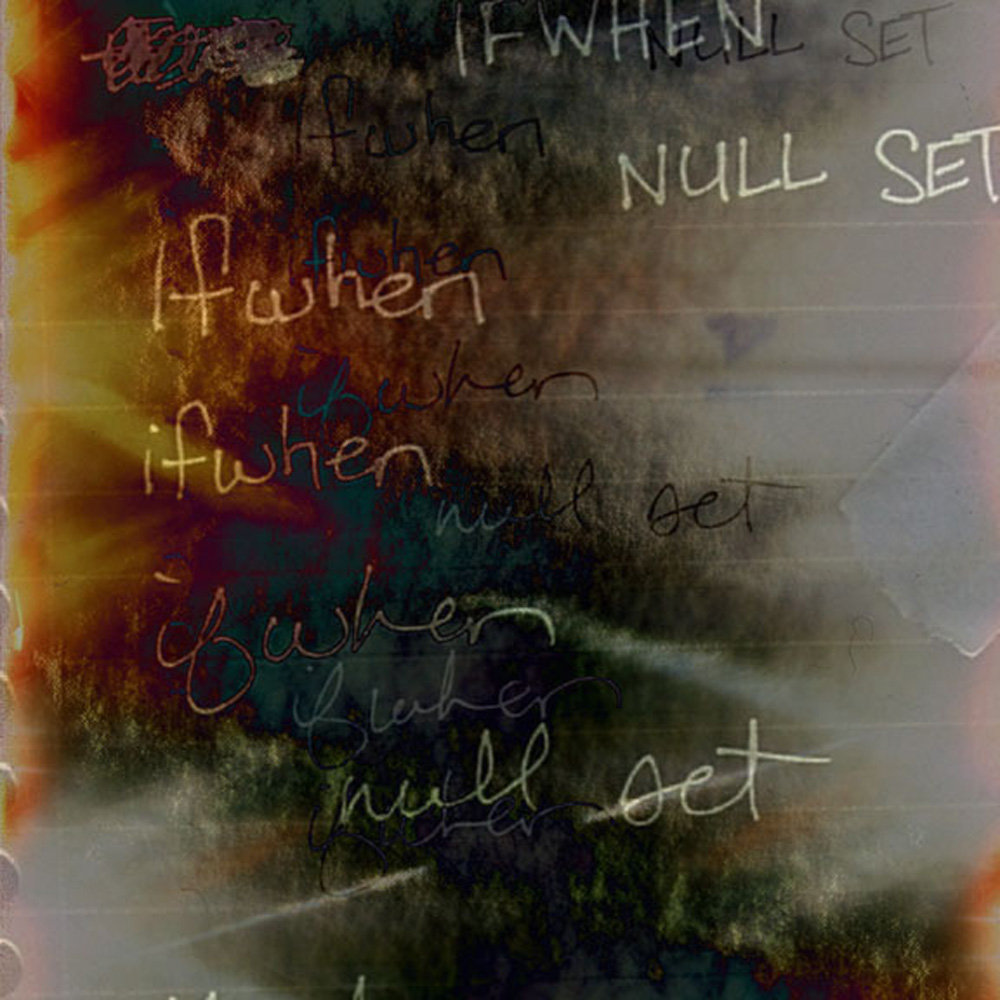 IFWHEN
NULL SET
Ifwhen
NULL SET
ifwhen
Ifwhen
ifwhen
ifwhen
null set
ifwhen
ifwhen
null set
ifwhen